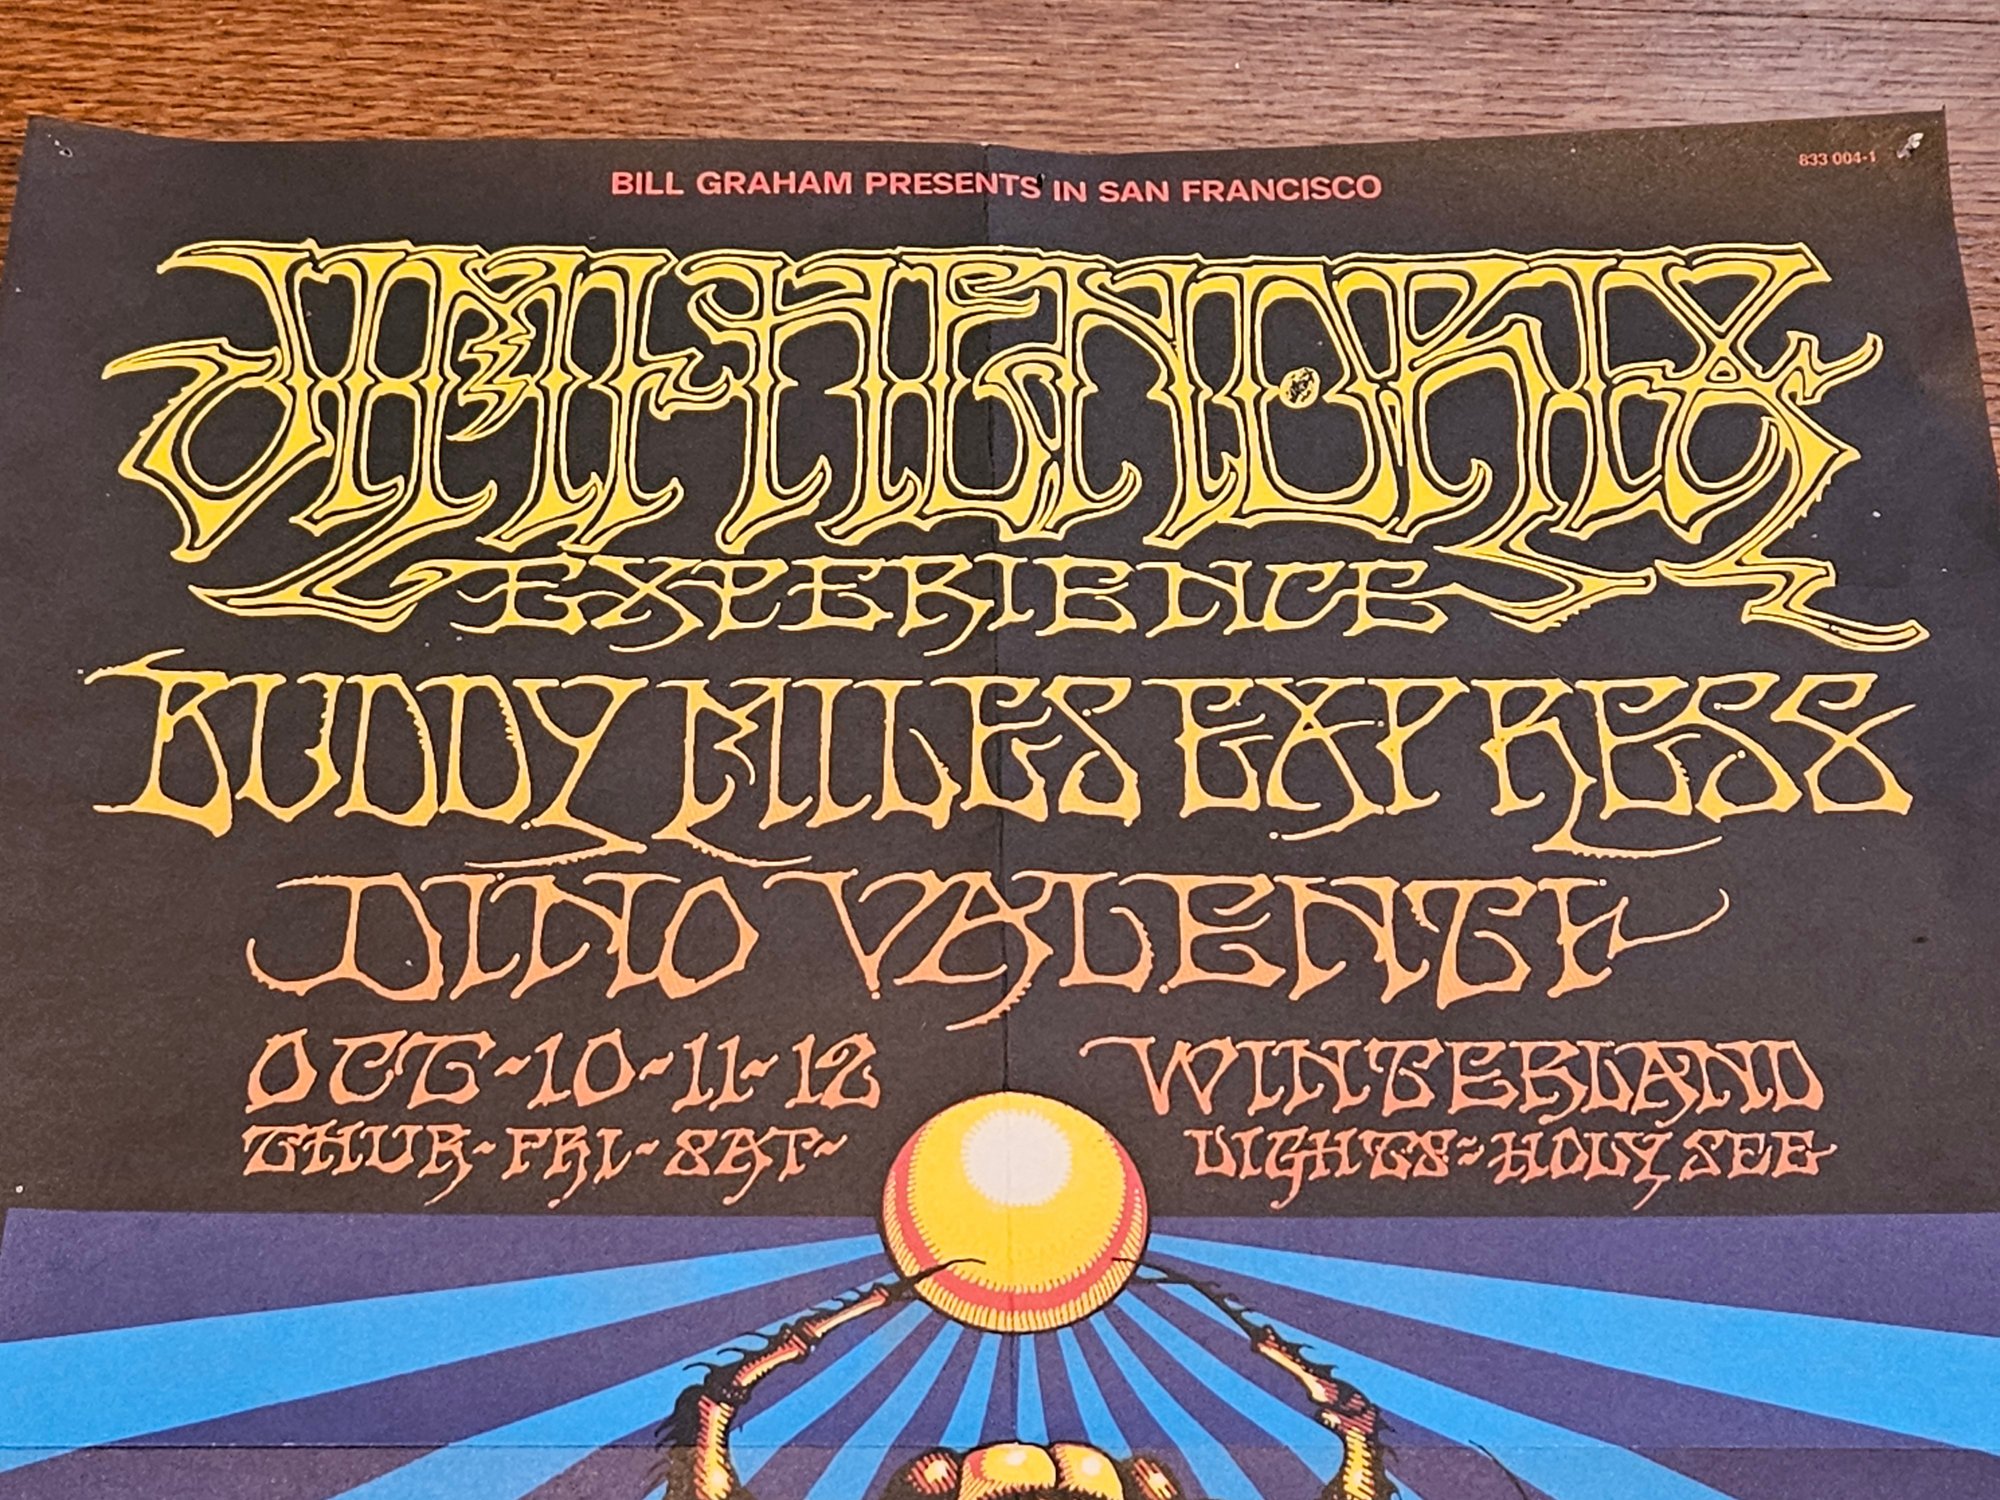 833 004-1
BILL GRAHAM PRESENTS IN SAN FRANCISCO
JIMI HENDRIX
EXPERIENCE
BUDDY MILES EXPRESS
DINO VALENTI
OCT~10~11~12
THUR~FRI~SAT~
WINTERLAND
LIGHTS~HOLY SEE